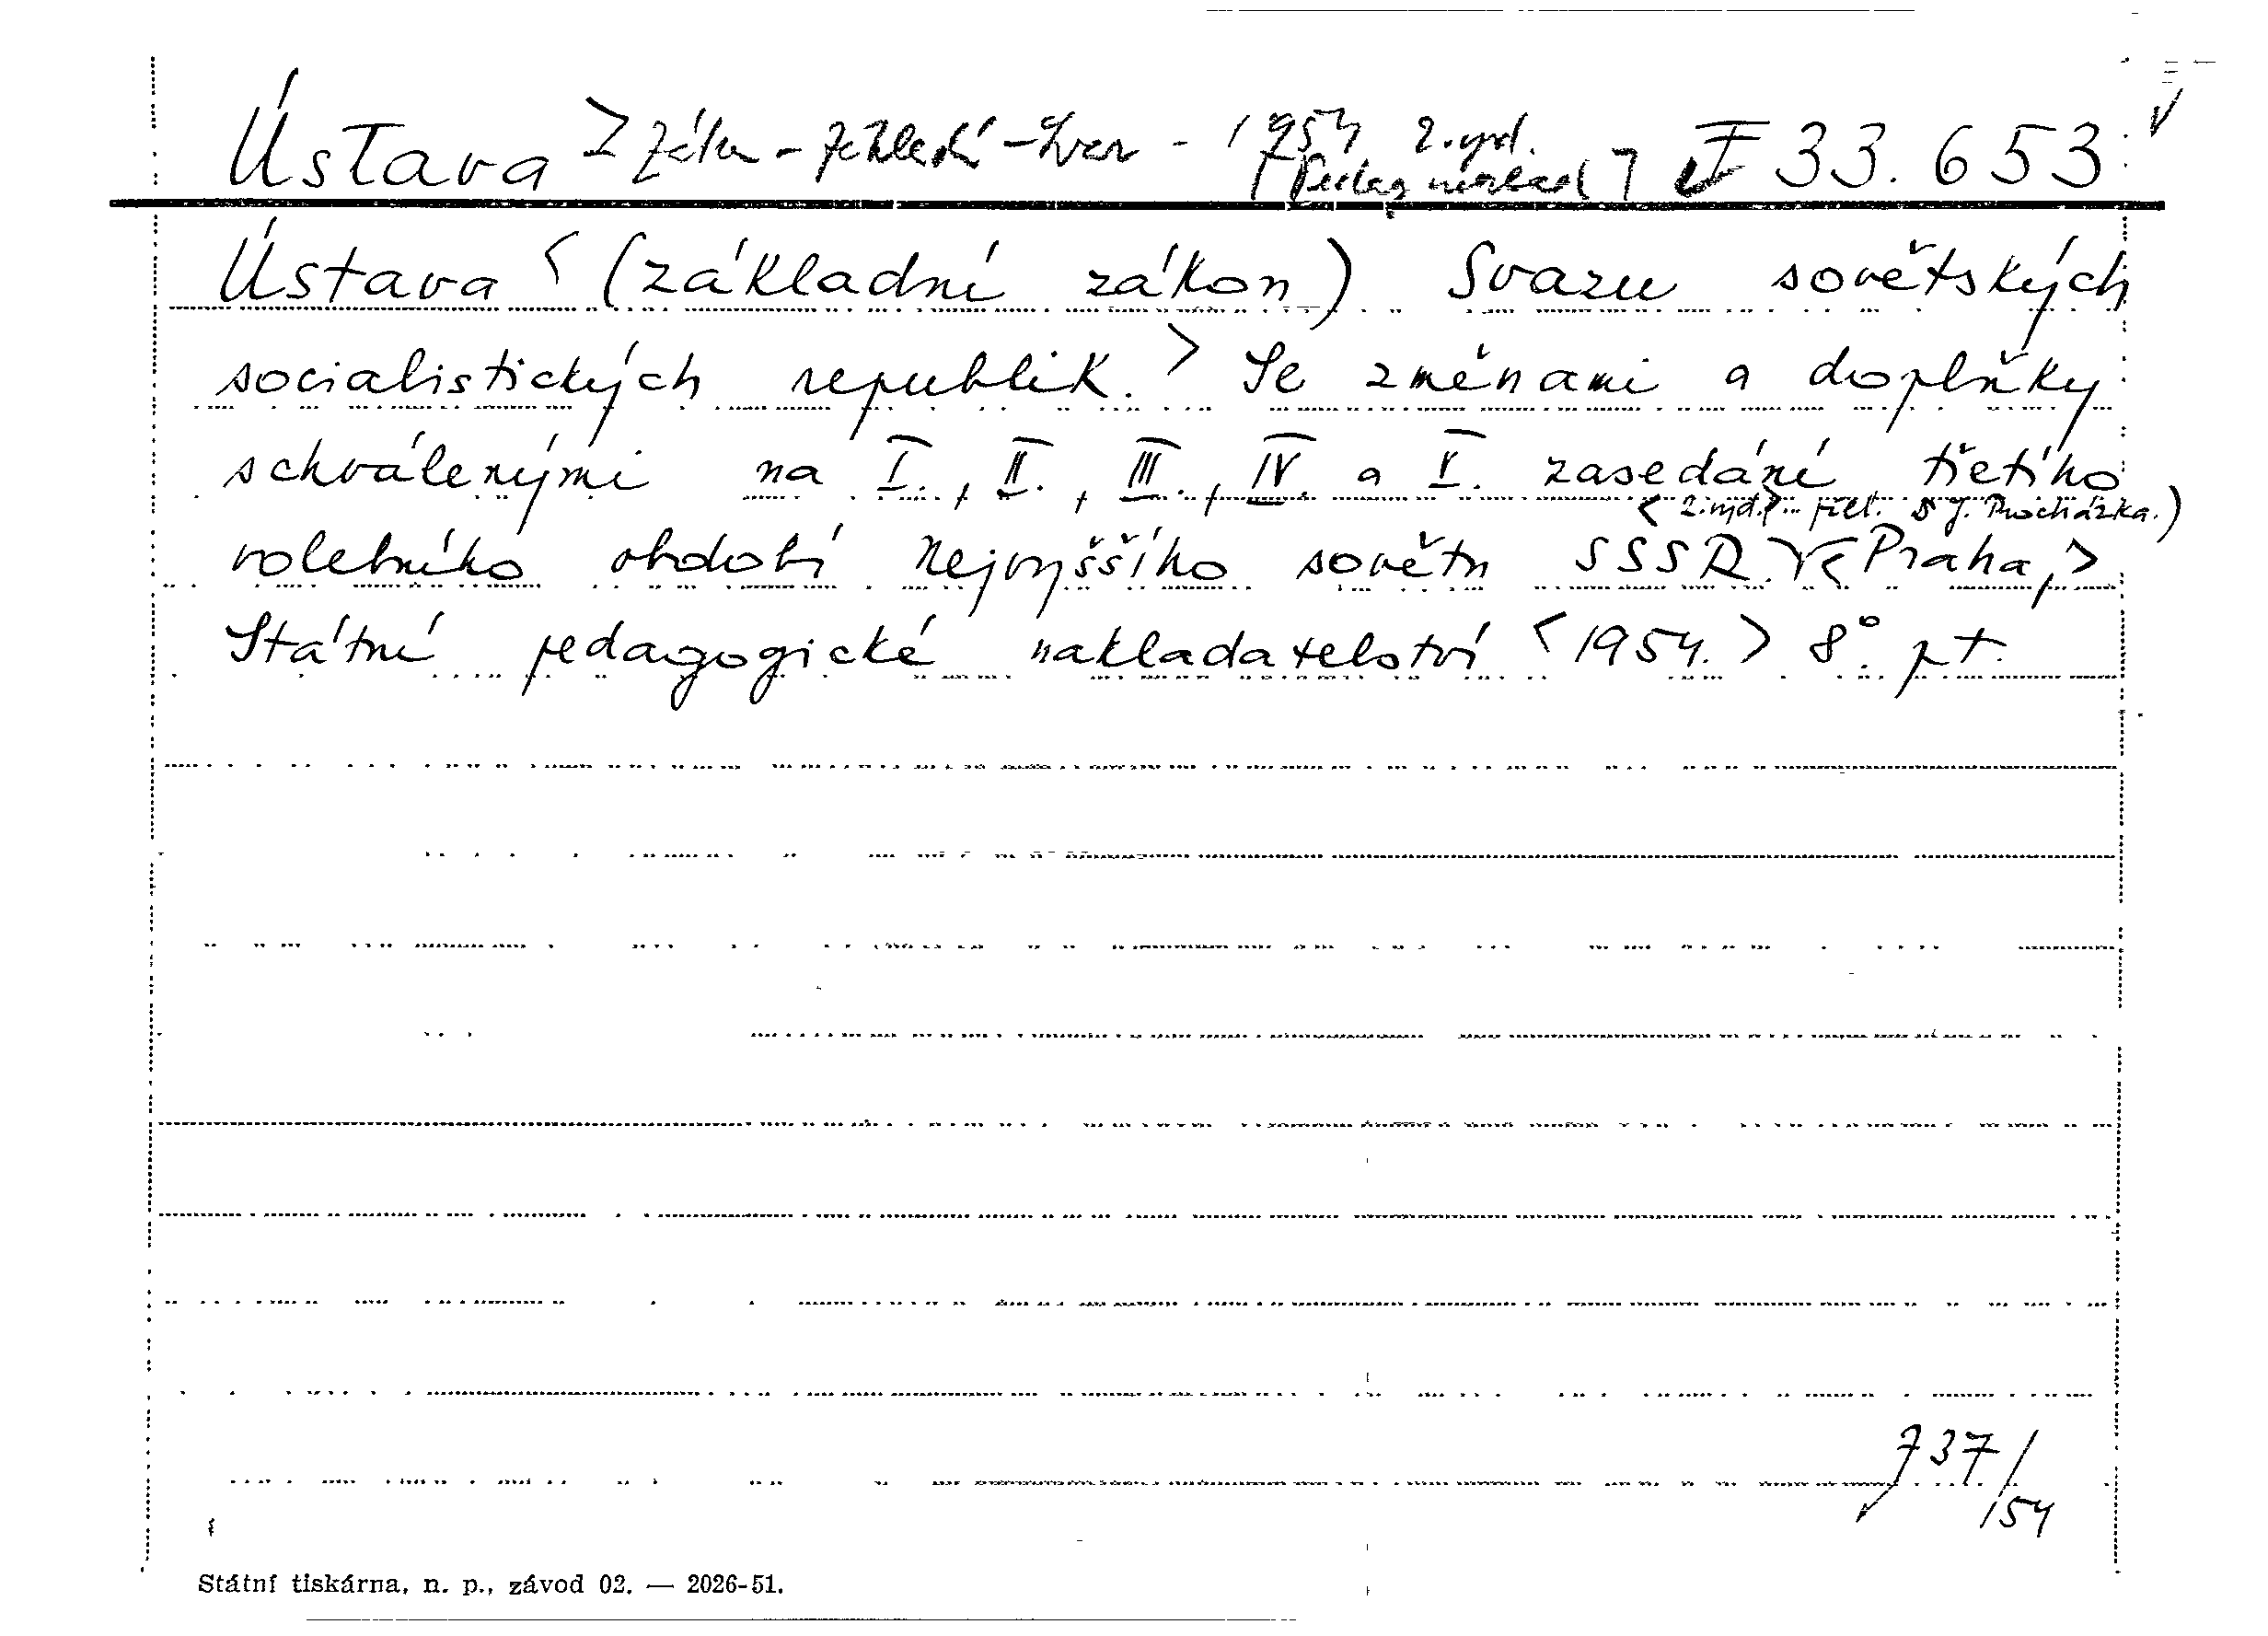 Ústava > Zákon - základní - Svaz - 1954 2. vyd. I 33.653
[Pedag. naklad.]
Ústava < (základní zákon) Svazu sovětských
socialistických republik. > Se změnami a doplňky
schválenými na I., II., III., IV. a V. zasedání třetího
< 2. vyd. > přel. J. Procházka.)
volebního období Nejvyššího sovětu SSSR. < Praha, >
Státní pedagogické nakladatelství < 1954. > 8°. pt.
737/
154
Státní tiskárna, n. p., závod 02. — 2026-51.